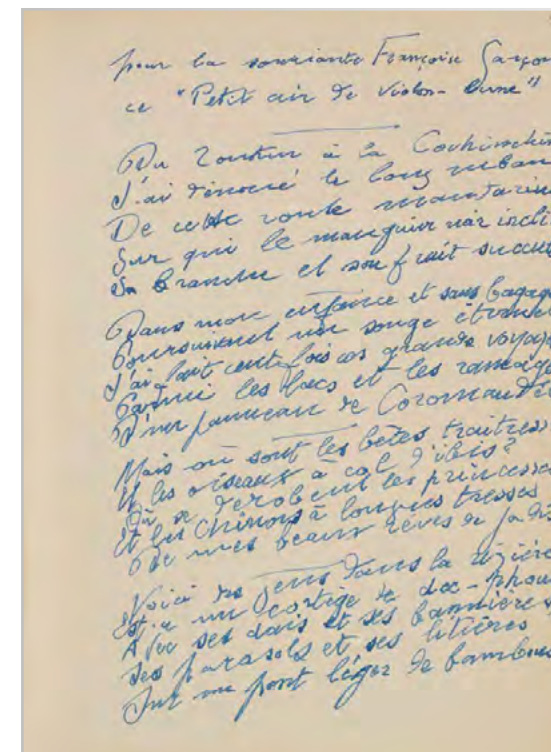 pour la souriante Françoise Garçon
ce "Petit air de Violon-Dune"
Du Tonkin à la Cochinchin
J'ai dénoué le long ruban
De cette route mandarine
Sur qui le manguier noir incli
Sa branche et son fruit succu
Dans mon enfance et sans bagage
Poursuivant un songe étran
J'ai fait cent fois ces grands voyag
Parmi les lacs et les ramage
D'un panneau de Coromandel
Mais où sont les bêtes traitres
Et les oiseaux à col d'ibis?
Où se dérobent les princesses
Et les Chinois à longues tresses
De mes beaux rêves de jadis
Voici des gens dans la rizière
Est-ce un cortège de doc-phou
Avec ses dais et ses bannières
Ses parasols et ses litières
Sur un pont léger de bambous